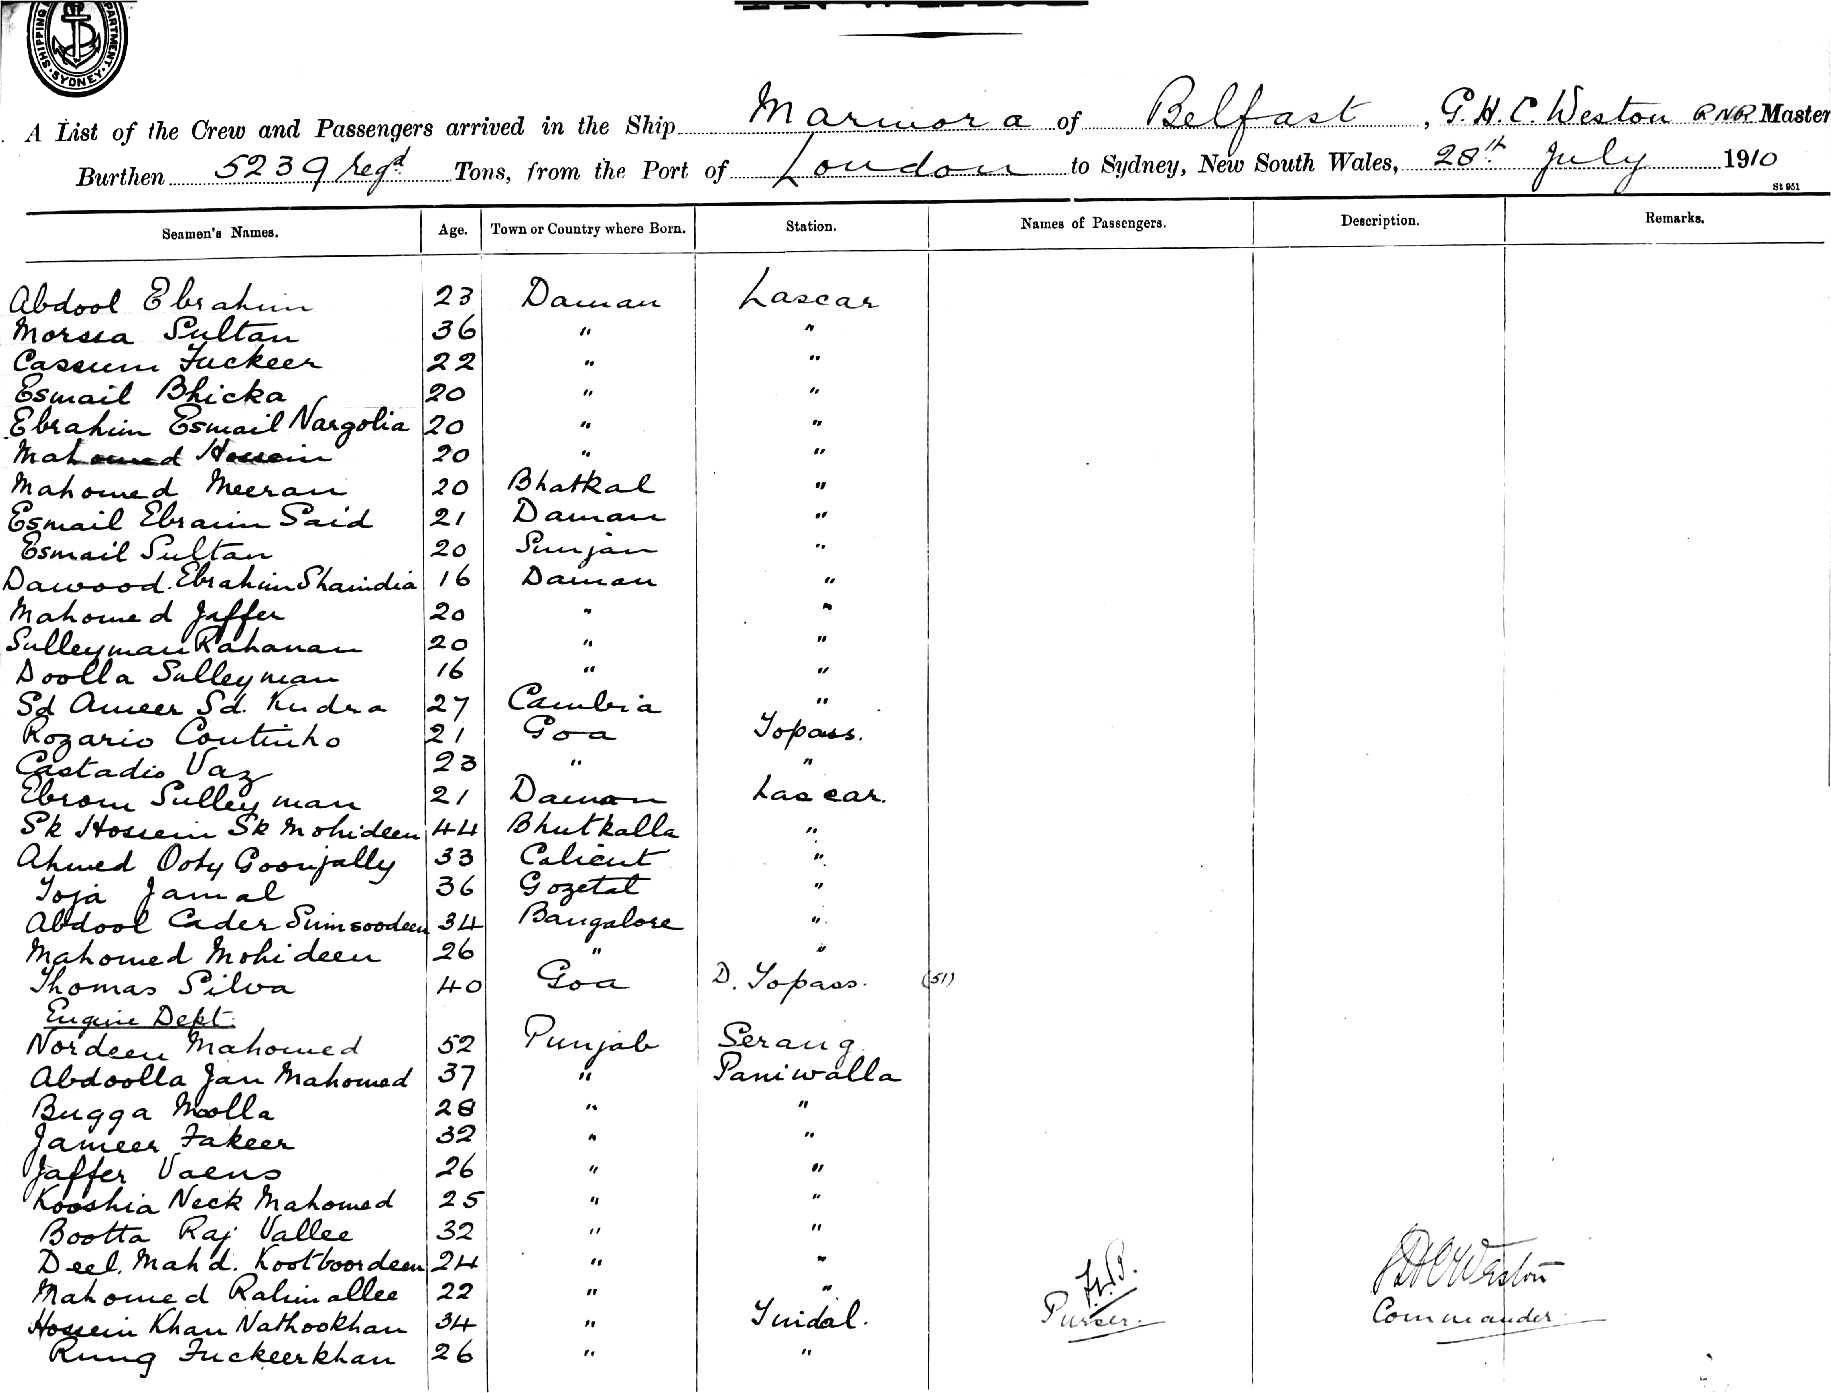 SHIPPING DEPARTMENT SYDNEY
A List of the Crew and Passengers arrived in the Ship Marmora of Belfast, G. H. C. Weston RNR Master
Burthen 5239 regd Tons, from the Port of London to Sydney, New South Wales, 28th July 1910
St 951
Seamen's Names. Age. Town or Country where Born. Station. Names of Passengers. Description. Remarks.
Abdool Ebrahim 23 Daman Lascar
Morssa Sultan 36 " "
Cassum Fuckeer 22 " "
Esmail Bhicka 20 " "
Ebrahim Esmail Nargolia 20 " "
Mahomed Hossein 20 " "
Mahomed Meeran 20 Bhatkal "
Esmail Ebraim Said 21 Daman "
Esmail Sultan 20 Sunjan "
Dawood Ebrahim Shamdia 16 Daman "
Mahomed Jaffer 20 " "
Sulleyman Rahanan 20 " "
Doolla Sulleyman 16 " "
Sd Ameer Sd. Kudra 27 Cambia "
Rozario Coutinho 21 Goa Topass.
Castadio Vaz 23 " "
Ebrom Sulleyman 21 Daman Lascar.
Sk Hossein Sk Mohideen 44 Bhutkalla "
Ahmed Ooty Goonjally 33 Calicut "
Toja Jamal 36 Gozetat "
Abdool Cader Sumsoodeen 34 Bangalore "
Mahomed Mohideen 26 " "
Thomas Silva 40 Goa D. Topass. (51)
Engine Dept.
Nordeen Mahomed 52 Punjab Serang
Abdoolla Jan Mahomed 37 " Paniwalla
Bugga Moolla 28 " "
Jameer Fakeer 32 " "
Jaffer Vaens 26 " "
Kooshia Neck Mahomed 25 " "
Bootta Raj Vallee 32 " "
Deel. Mahd. Kootboordeen 24 " "
Mahomed Ralimallee 22 " "
Hossein Khan Nathookhan 34 " Tindal. Purser. GHCWeston Commander
Rung Fuckeerkhan 26 " "